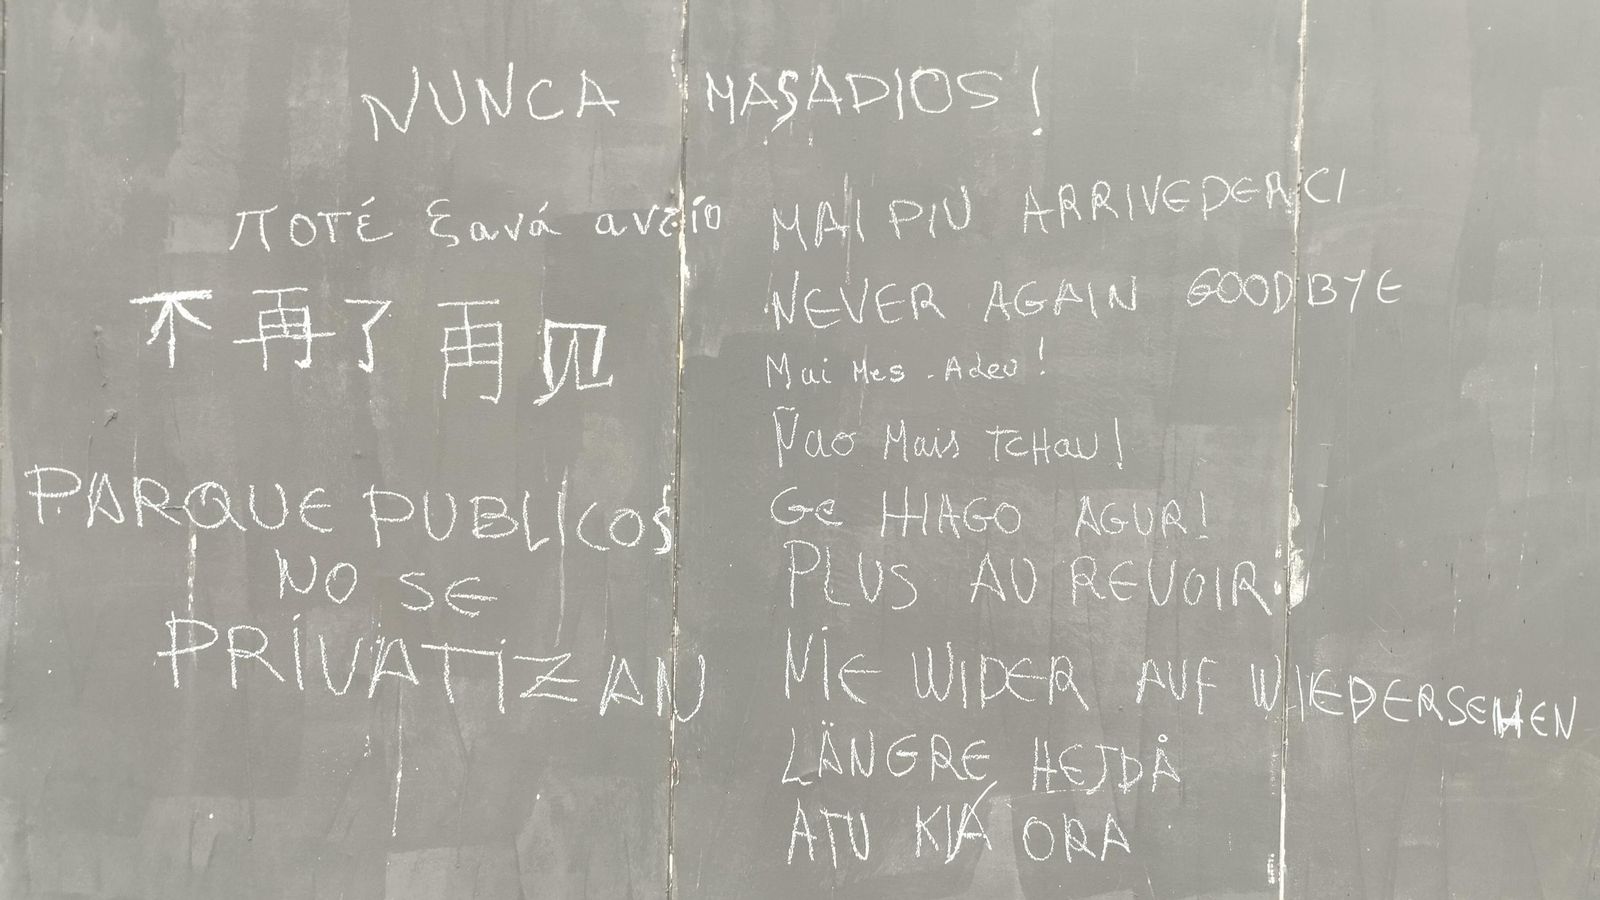 NUNCA MAS ADIOS!
ποτέ ξανά αντίο
不再了再见
PARQUE PUBLICOS
NO SE
PRIVATIZAN
MAI PIU ARRIVEDERCI
NEVER AGAIN GOODBYE
Mai Mes - Adeu!
Ñao Mais TCHAU!
Ge HIAGO AGUR!
PLUS AU REVOIR.
NIE WIDER AUF WIEDERSEHEN
LÄNGRE HEJDÅ
ATU KIÁ ORA